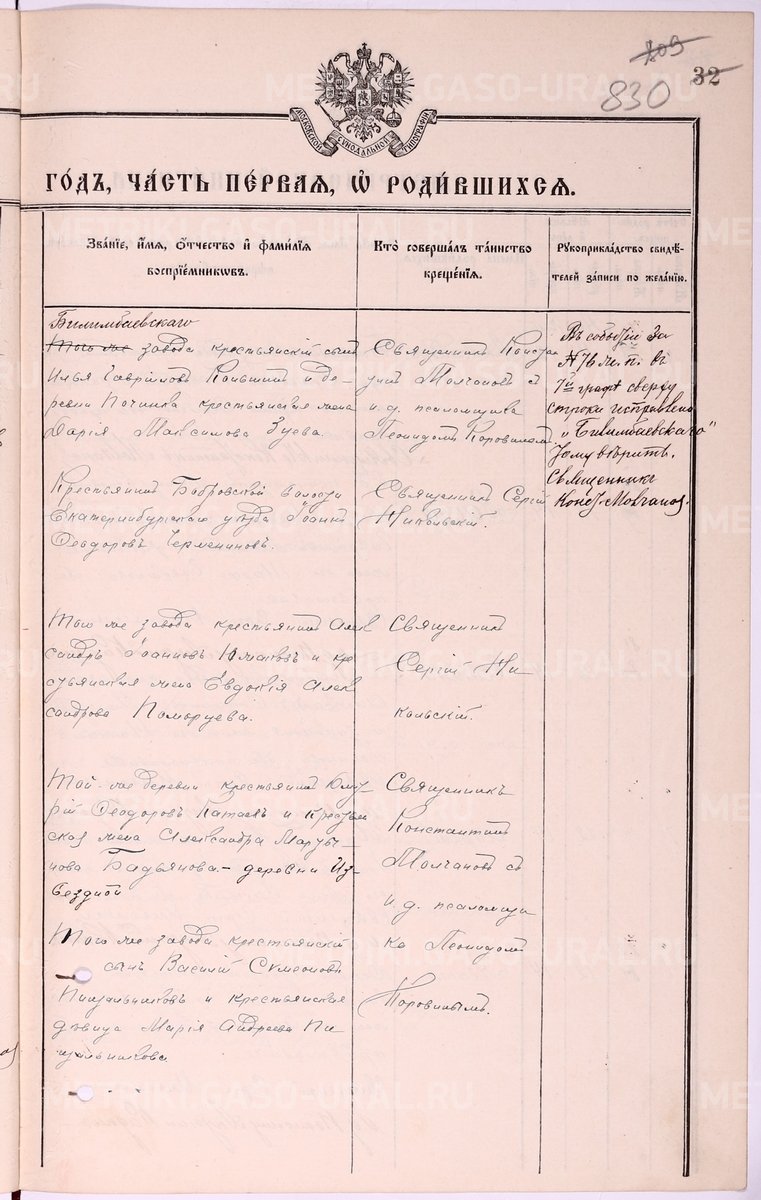 803
830
32
МОСКОВСКОЙ СѴНОДАЛЬНОЙ ТИПОГРАФІИ
ГО́ДЪ, ЧА́СТЬ ПЕ́РВАЯ, Ѽ РОДИ́ВШИХСЯ.
Зва́нїе, и҆́мя, ѻ҆́тчество и҆ фами́лїя
воспрїе́мникѡвъ.
Кто̀ соверша́лъ та́инство
креще́нїя.
Рꙋкоприкла́дство свидѣ́-
телей за́писи по жела́нїю.
Билимбаевскаго
Того же завода крестьянскій сынъ
Илья Гавріиловъ и де-
ревни Починка крестьянская жена
Дарія Максимова Зуева.
Священникъ Конста
Молчановъ съ
и. д. псаломщика
Леонидомъ Коровинымъ
Въ событіи за
№ 76 м. п. въ
7й графѣ сверху
строки исправлено
„Билимбаевскаго"
тому вѣрить.
Священникъ
Конст. Молчановъ.
Крестьянинъ Бобровской волости
Екатеринбургскаго уѣзда Іоаннъ
Ѳеодоровъ
Священникъ Сергій
Никольскій.
Того же завода крестьянинъ Алек
сандръ Іоанновъ и кре
стьянская жена Евдокія Алек
сандрова Поморцева.
Священникъ
Сергій Ни
кольскій.
Той-же деревни крестьянинъ Дмит
рій Ѳеодоровъ Катаевъ и крестьян
ская жена Александра Марты-
нова Бадьянова.- деревни Из-
вездной
Священникъ
Константинъ
Молчановъ съ
и. д. псаломщи
ка Леонидомъ
Коровинымъ.
Того же завода крестьянскій
сынъ Василій Симеоновъ
Пищальниковъ и крестьянская
дѣвица Марія Андреева Пи
щальникова
METRIKI.GASO-URAL.RU